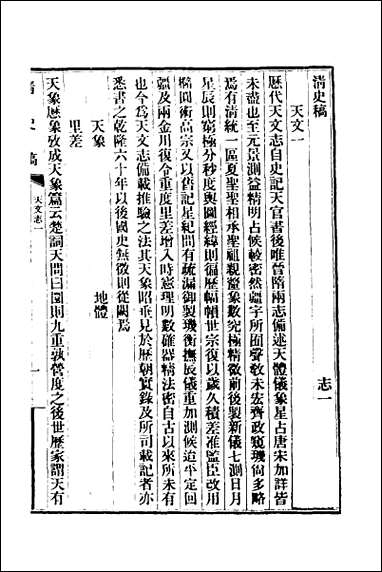 清史稿 志一
天文一
歷代天文志自史記天官書後唯晉隋兩志備述天體儀象星占唐宋加詳皆
未盡也至元景測益精明占候較密然疆宇所囿聲敎未宏齊政窺璣尙多略
焉有清統一區夏聖聖相承聖祖親釐象數究極精微前後製新儀七測日月
星辰則窮極分秒度輿圖經緯則徧歷幅幀世宗復以歲久積差准監臣改用
橢圓術高宗又以舊記星紀間有疏漏御製璣衡撫辰儀重加測候迨平定回
疆及兩金川復令重度里差增入時憲理明數確器精法密自古以來所未有
也今爲天文志備載推驗之法其天象昭垂見於歷朝實錄及所司載記者亦
悉書之乾隆六十年以後國史無徵則從闕焉
天象 地體
里差
天象歷象攷成天象篇云楚詞天問曰圜則九重孰營度之後世歷家謂天有
清史稿 天文志一 一